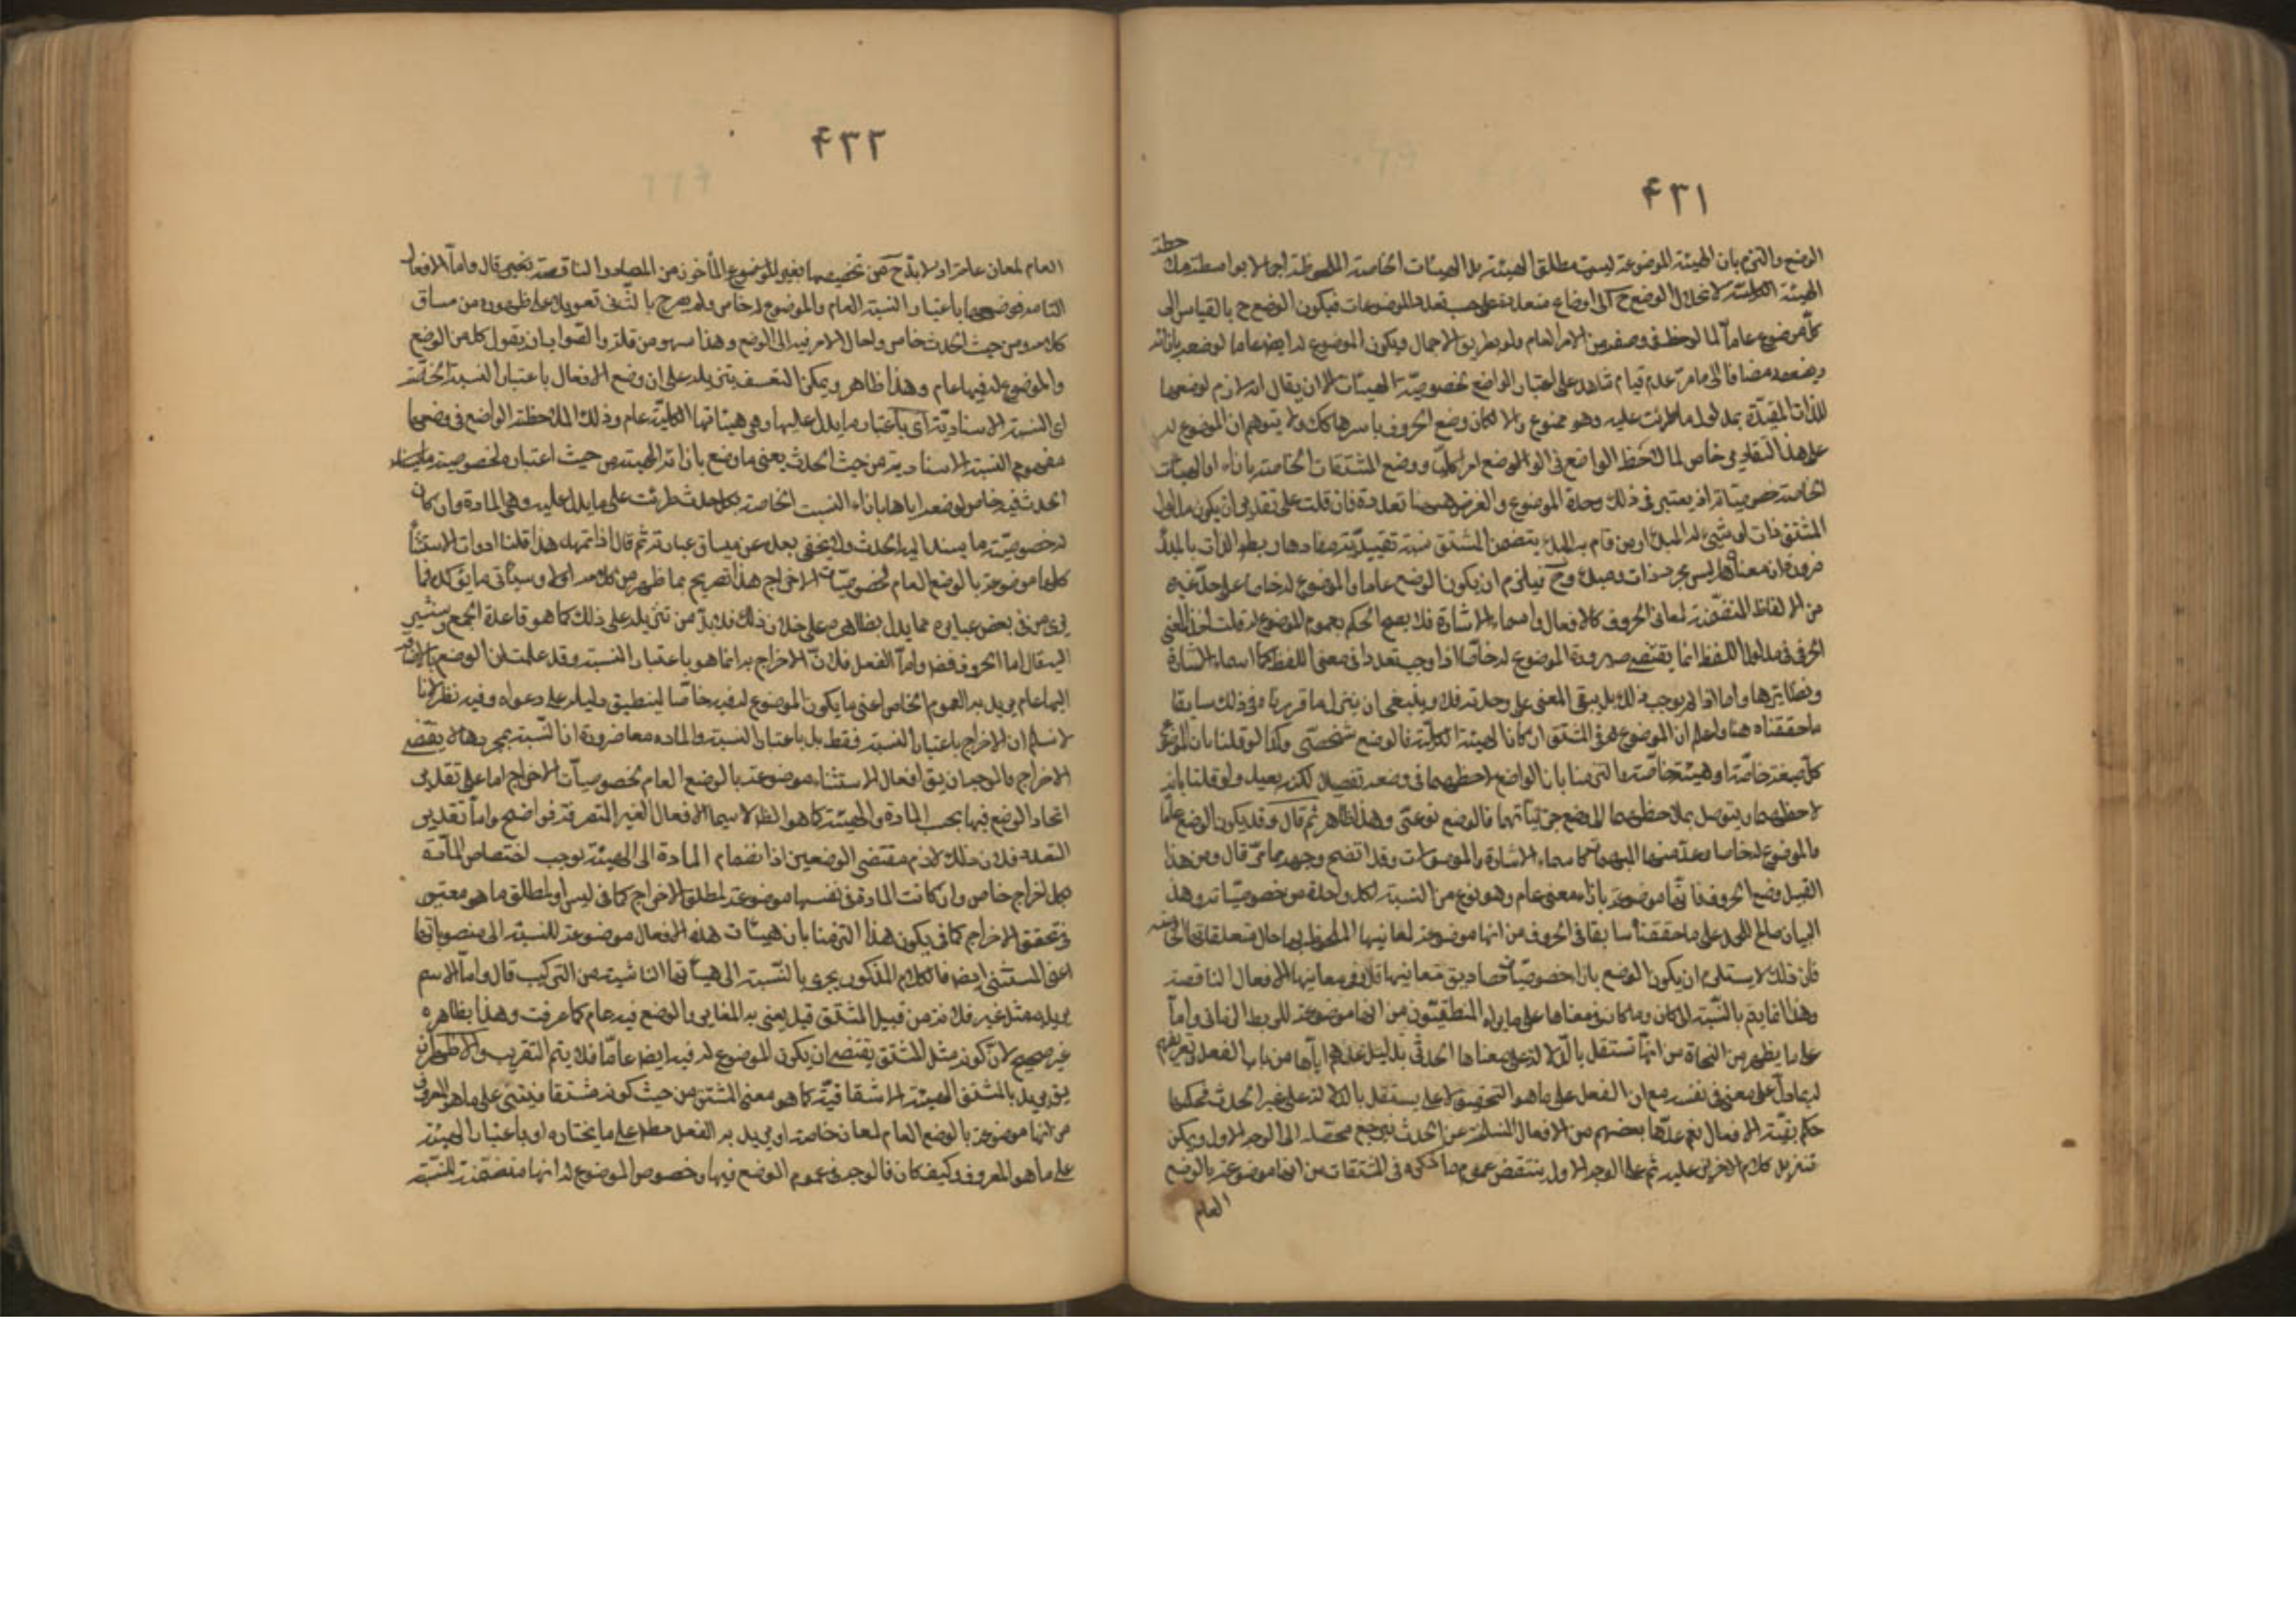 ۴۳۱
الوضع والتزم بان الهيئة الموضوعة ليست مطلق الهيئة بل الهيئات الخاصة الملحوظة اجمالا بواسطة ملاحظة
الهيئة الكلية لانحلال الوضع ح الى اوضاع متعددة على حسب تعدد الموضوعات فيكون الوضع ح بالقياس الى
كل موضوع عاما لما لوحظ في وصفه من الامر العام ولو بطريق الاجمال ويكون الموضوع له ايضا عاما لوضعه بازائه
ويضعفه مضافا الى ما مر عدم قيام شاهد على اعتبار الواضع لخصوصية الهيئات الا ان يقال انه لازم لوضعها
للذات المقيدة بمدلول ما طرئت عليه وهو ممنوع والا لكان وضع الحروف باسرها كك ولا يتوهم ان الموضوع له
على هذا التقدير خاص لما لاحظ الواضع في الوضع امرا كليا ووضع المشتقات الخاصة بازاء
الخاصة خصوصياته اذ يعتبر في ذلك وحدة الموضوع والفرض هيهنا تعدده فان قلت على تقدير ان يكون مدلول
المشتق ذات او شيء له المبدء او من قام به المبدء يتضمن المشتق نسبة تقييدية مفادها ربط الذات بالمبدء
ضرورة ان معناها ليس مجرد ذات ومبدء وح فيلزم ان يكون الوضع عاما والموضوع له خاصا على حد غيره
من الالفاظ المتضمنة لمعاني الحروف كالافعال واسماء الاشارة فلا يصح الحكم بعموم الموضوع له قلت اخذ المعنى
الحرفي في مدلول اللفظ انما يقتضي صيرورة الموضوع له خاصا اذا اوجب تعددا في معنى اللفظ كما في اسماء الاشارة
ونظائرها واما اذا لم يوجب ذلك بل يبقى المعنى على وحدته فلا وينبغي ان ينزل ما قررناه في ذلك سابقا
ما حققناه هنا واعلم ان الموضوع في المشتق ان كان الهيئة الكلية فالوضع شخصي وكذا لو قلنا بان الموضوع
كل صيغة خاصة او هيئة خاصة والتزمنا بان الواضع لاحظها في وضعه تفصيلا لكنه بعيد ولو قلنا بانه
لاحظها ويتوصل بملاحظتها الى وضع جزئياتها فالوضع نوعي وهذا ظاهر ثم قال وقد يكون الوضع عاما
والموضوع له خاصا وعد منها المبهمات كاسماء الاشارة والموصولات وقد اتضح وجهه مما مر قال ومن هذا
القبيل وضع الحروف فانها موضوعة بازاء معنى عام وهو نوع من النسبة لكل واحدة من خصوصياته وهذا
البيان صالح للحمل على ما حققناه سابقا في الحروف من انها موضوعة لمعانيها الملحوظ بها حال متعلقاتها
فان ذلك لا يستلزم ان يكون الوضع بازاء خصوصيات مصاديق معانيها قال وفي معانيها الافعال الناقصة
وهذا انما يتم بالنسبة الى كان وما كان في معناها على ما يراه المنطقيون من انها موضوعة للربط الزماني واما
على ما يظهر من النحاة من انها تستقل بالدلالة على معناها الحدثي بدليل عدهم اياها من باب الفعل وتعريفهم
له بما دل على معنى في نفسه مع ان الفعل على ما هو التحقيق لا يستقل بالدلالة على غير الحدث فحكمها
حكم بقية الافعال نعم عدها بعضهم من الافعال المنسلخة عن الحدث فيرجع محصله الى الوجه الاول ويمكن
تنزيل كلام الاخرين عليه ثم على الوجه الاول ينتقض عموم ما ذكره في المشتقات من انها موضوعة بالوضع
العام
۴۳۲
العام لمعان عامة اذ لا بد ح من تخصيصها بغير الموضوع المأخوذ من المصادر الناقصة قال واما الافعال
التامة فوضعها باعتبار النسبة العام والموضوع له خاص ولم يصرح بالثاني تعويلا على ظهوره من مساق
كلامه ومن حيث الحدث خاص ولعل الامر فيه الى الوضع وهذا سهو من قلمه والصواب ان يقول كل من الوضع
والموضوع له فيها عام وهذا ظاهر ويمكن التعسف بتنزيله على ان وضع الافعال باعتبار النسبة الحدثية
اي النسبة الاسنادية اي باعتبار ما يدل عليها وهي هيئاتها الكلية عام وذلك لملاحظة الواضع في وضعها
مفهوم النسبة الاسنادية ومن حيث الحدث يعني ما وضع بازائه الهيئة من حيث اعتباره لخصوصية
الحدث فيه خاص لوضعه اياها بازاء النسبة الخاصة بكل حدث طرئت على ما يدل عليه وهي المادة وان كان
له خصوصية ما يسند اليه الحدث ولا يخفى بعده عن مساق عبارته ثم قال اذا تمهد هذا قلنا ادوات الاستثناء
كلها موضوعة بالوضع العام لخصوصيات الاخراج هذا تصريح بما ظهر من كلامه اولا وسيأتي ما يؤكده فما
في بعض عباراته مما يدل بظاهره على خلاف ذلك فلا بد من تنزيله على ذلك كما هو قاعدة الجمع وسنشير
اليه قال اما الحروف فضر واما الفعل فلان الاخراج به انما هو باعتبار النسبة وقد علمت ان الوضع بالاضافة
اليها عام يريد به العموم الخاص اعني ما يكون الموضوع له فيه خاصا لينطبق دليله على دعواه وفيه نظر لانا
لا نسلم ان الاخراج باعتبار النسبة فقط بل باعتبار النسبة والمادة معا ضرورة ان النسبة بمجردها لا يقتضي
الاخراج فالوجه ان يق افعال الاستثناء موضوعة بالوضع العام لخصوصيات الاخراج اما على تقدير
اتحاد الوضع فيها بحسب المادة والهيئة كما هو الظ لا سيما الافعال الغير المتصرفة فواضح واما تقدير
التعدد فلان ذلك لازم مقتضى الوضعين اذ انضمام المادة الى الهيئة يوجب اختصاص المادة
بكل اخراج خاص وان كانت المادة في نفسها موضوعة لمطلق الاخراج كما في ليس او لمطلق ما هو معتبر
في تحقق الاخراج كما في يكون هذا ان التزمنا بان هيئات هذه الافعال موضوعة للنسبة الى منصوباتها
اعني المستثنى ايضا فالكلام المذكور يجري بالنسبة الى هيئاتها الناشية من التركيب قال واما الاسم
يريد مثل غير فلانه من قبيل المشتق قيل يعني به المغاير والوضع فيه عام كما عرفت وهذا بظاهره
غير صحيح لان كونه مثل المشتق يقتضي ان يكون الموضوع له فيه ايضا عاما فلا يتم التقريب والاظهر ان
يق يريد بالمشتق الهيئة الاشتقاقية كما هو معنى المشتق من حيث كونه مشتقا فيبتني على ما هو المعروف
من انها موضوعة بالوضع العام لمعان خاصة او يريد به الفعل مطلقا على ما يختاره او باعتبار الهيئة
على ما هو المعروف وكيف كان فالوجه في عموم الوضع فيها وخصوص الموضوع له انها متضمنة للنسبة